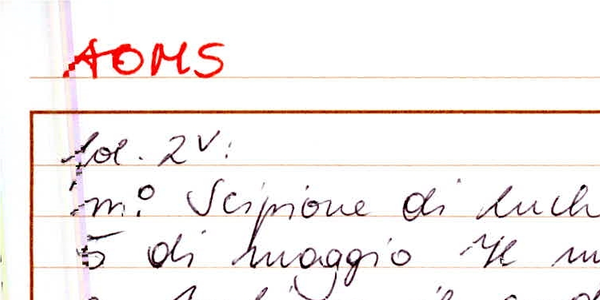 AOMS
fol. 2v:
m.º Scipione di luch
5 di maggio Il m